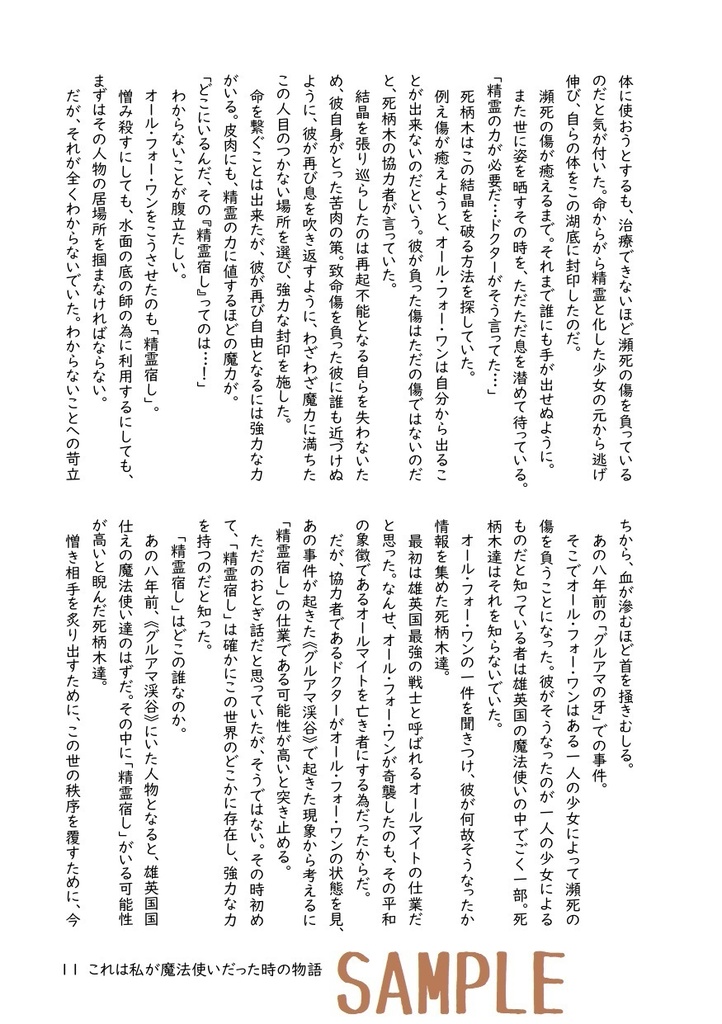 体に使おうとするも、治療できないほど瀕死の傷を負っている
のだと気が付いた。命からがら精霊と化した少女の元から逃げ
伸び、自らの体をこの湖底に封印したのだ。
瀕死の傷が癒えるまで。それまで誰にも手が出せぬように。
また世に姿を晒すその時を、ただただ息を潜めて待っている。
「精霊の力が必要だ…ドクターがそう言ってた…」
死柄木はこの結晶を破る方法を探していた。
例え傷が癒えようと、オール・フォー・ワンは自分から出るこ
とが出来ないのだという。彼が負った傷はただの傷ではないのだ
と、死柄木の協力者が言っていた。
結晶を張り巡らしたのは再起不能となる自らを失わないた
め、彼自身がとった苦肉の策。致命傷を負った彼に誰も近づけぬ
ように、彼が再び息を吹き返すように、わざわざ魔力に満ちた
この人目のつかない場所を選び、強力な封印を施した。
命を繋ぐことは出来たが、彼が再び自由となるには強力な力
がいる。皮肉にも、精霊の力に値するほどの魔力が。
「どこにいるんだ、その『精霊宿し』ってのは…！」
わからないことが腹立たしい。
オール・フォー・ワンをこうさせたのも「精霊宿し」。
憎み殺すにしても、水面の底の師の為に利用するにしても、
まずはその人物の居場所を掴まなければならない。
だが、それが全くわからないでいた。わからないことへの苛立
ちから、血が滲むほど首を掻きむしる。
あの八年前の「グルアマの牙」での事件。
そこでオール・フォー・ワンはある一人の少女によって瀕死の
傷を負うことになった。彼がそうなったのが一人の少女による
ものだと知っている者は雄英国の魔法使いの中でごく一部。死
柄木達はそれを知らないでいた。
オール・フォー・ワンの一件を聞きつけ、彼が何故そうなったか
情報を集めた死柄木達。
最初は雄英国最強の戦士と呼ばれるオールマイトの仕業だ
と思った。なんせ、オール・フォー・ワンが奇襲したのも、その平和
の象徴であるオールマイトを亡き者にする為だったからだ。
だが、協力者であるドクターがオール・フォー・ワンの状態を見、
あの事件が起きた《グルアマ渓谷》で起きた現象から考えるに
「精霊宿し」の仕業である可能性が高いと突き止める。
ただのおとぎ話だと思っていたが、そうではない。その時初め
て、「精霊宿し」は確かにこの世界のどこかに存在し、強力な力
を持つのだと知った。
「精霊宿し」はどこの誰なのか。
あの八年前、《グルアマ渓谷》にいた人物となると、雄英国国
仕えの魔法使い達のはずだ。その中に「精霊宿し」がいる可能性
が高いと睨んだ死柄木達。
憎き相手を炙り出すために、この世の秩序を覆すために、今
11 これは私が魔法使いだった時の物語
SAMPLE